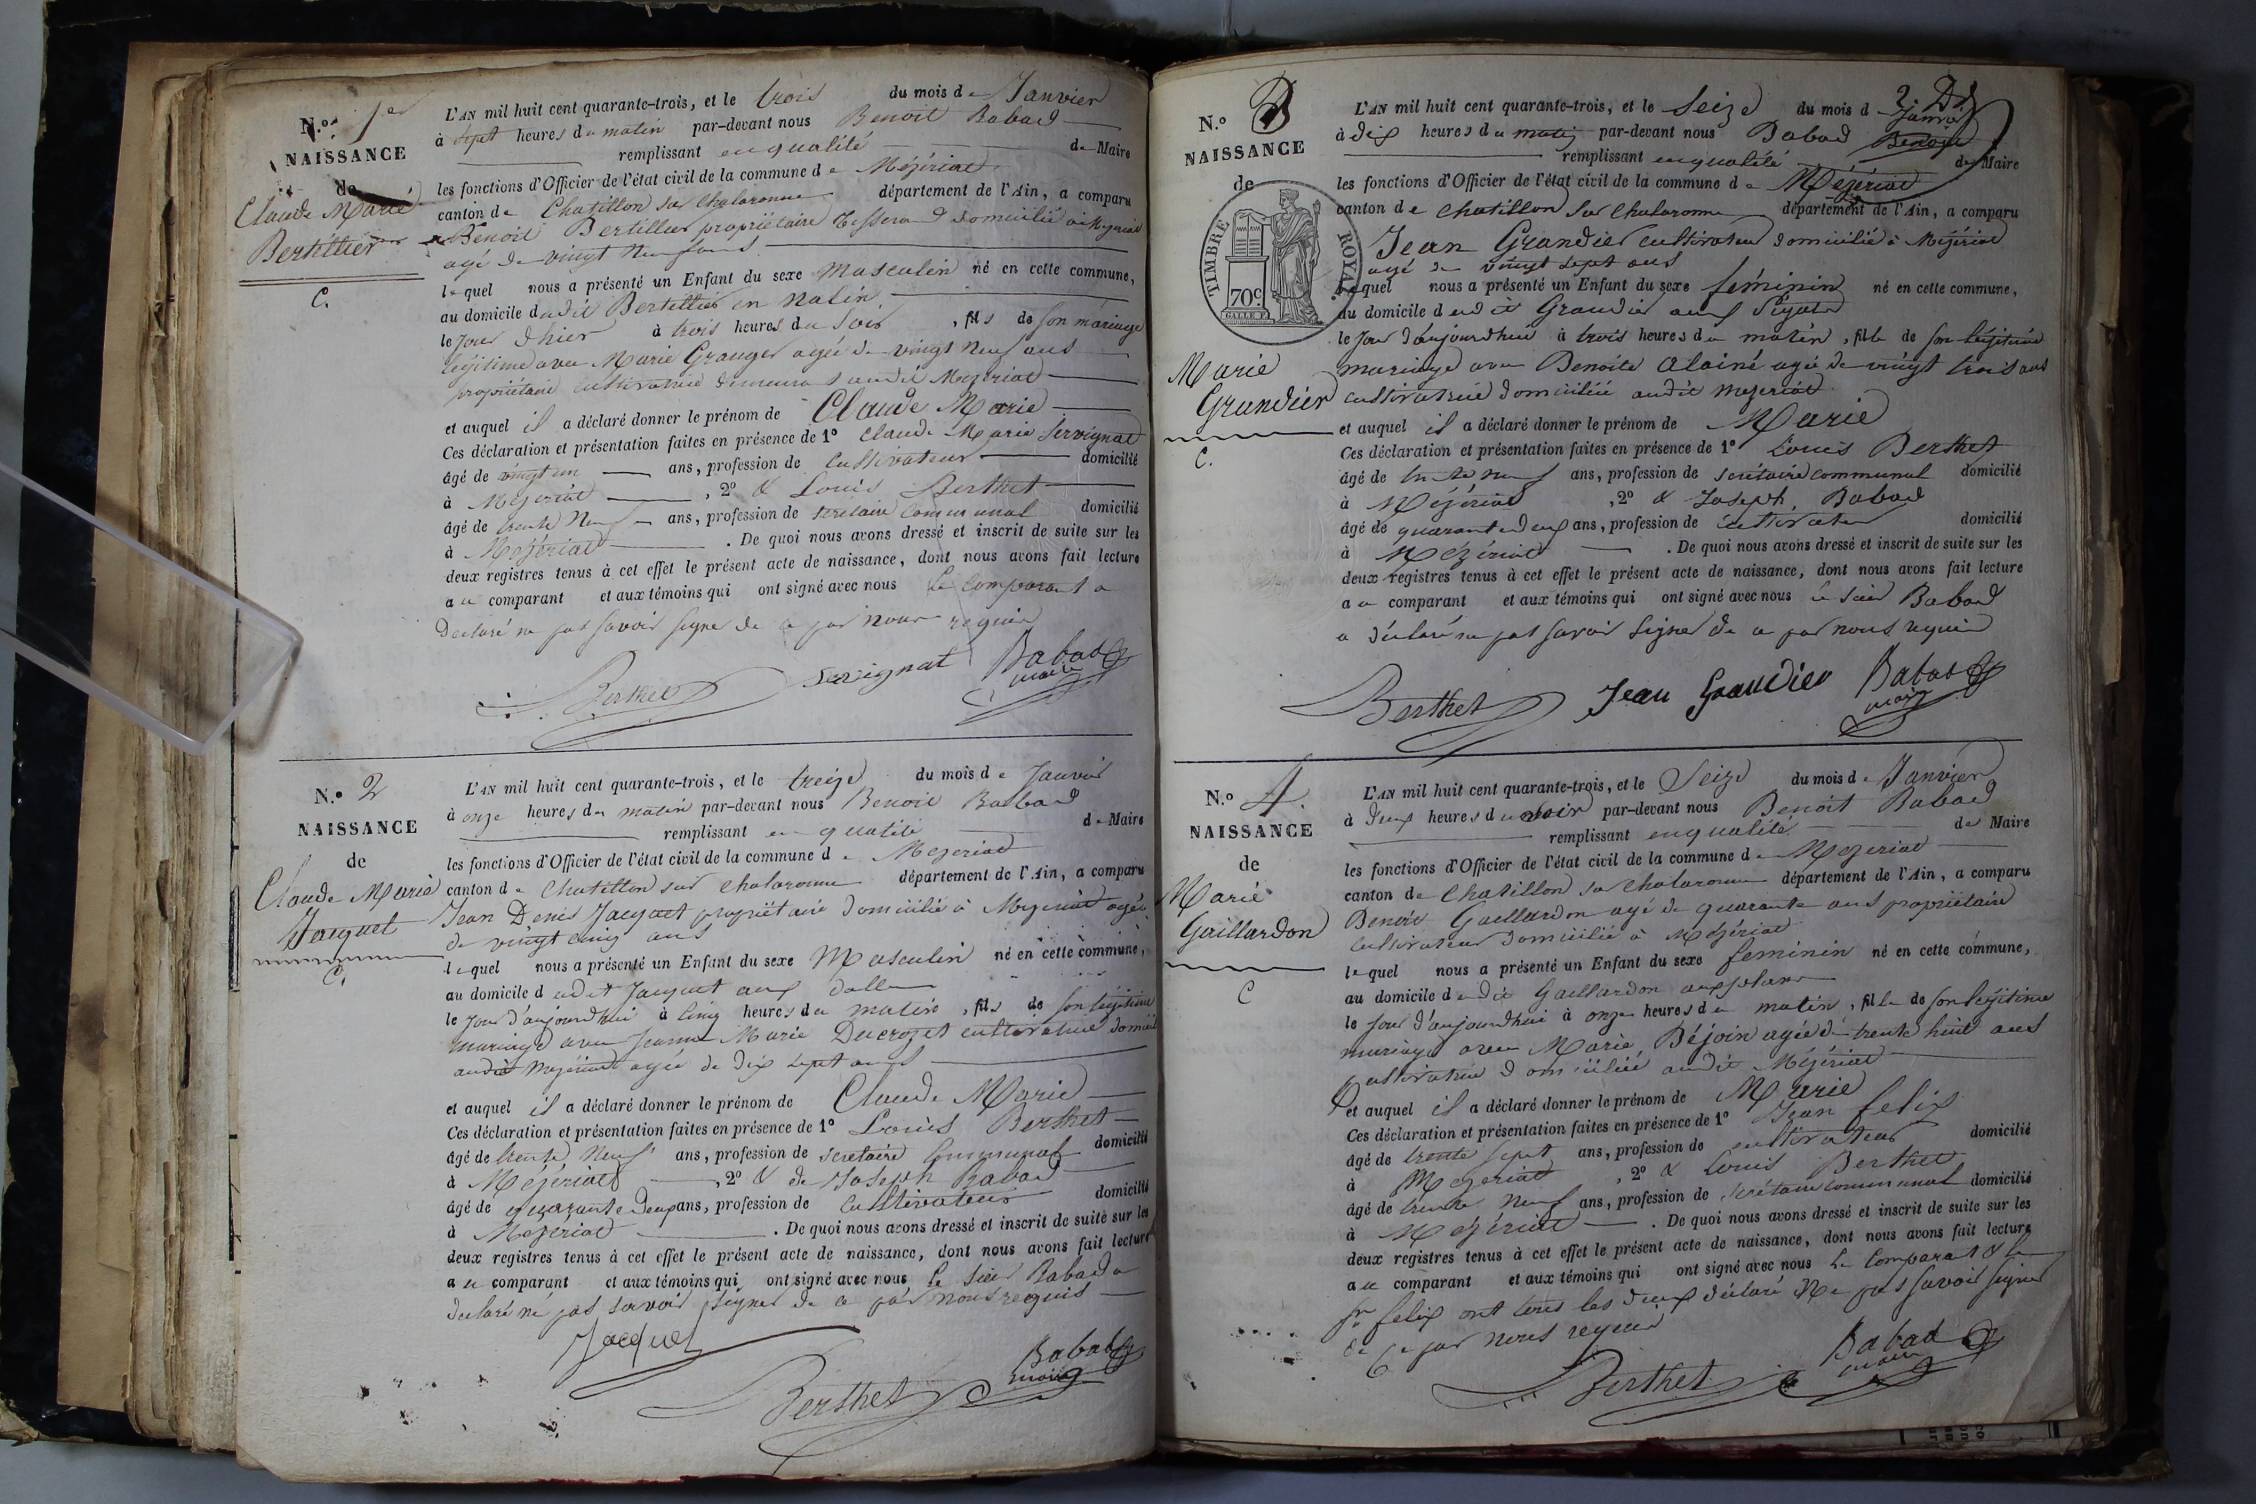 N.° 1er
NAISSANCE
de
Claude Marie
Bertillier
C.
L'AN mil huit cent quarante-trois, et le trois du mois de Janvier
à sept heures du matin par-devant nous Benoit Babad
remplissant en qualité de Maire
les fonctions d'Officier de l'état civil de la commune de Mézériat
canton de Chatillon sur Chalaronne département de l'Ain, a comparu
Benoit Bertillier propriétaire Tisserand domicilié à Mézériat
agé de vingt neuf ans
lequel nous a présenté un Enfant du sexe Masculin né en cette commune,
au domicile dudit Bertillier en
le jour d'hier à trois heures du Soir, fils de son mariage
légitime avec Marie Granger agée de vingt neuf ans
propriétaire cultivatrice demeurant audit Mézériat
et auquel il a déclaré donner le prénom de Claude Marie
Ces déclaration et présentation faites en présence de 1° Claude Marie Servignat
âgé de vingt un ans, profession de Cultivateur domicilié
à Mézériat, 2° & Louis Berthet
âgé de trente Neuf ans, profession de secrétaire Communal domicilié
à Mézériat. De quoi nous avons dressé et inscrit de suite sur les
deux registres tenus à cet effet le présent acte de naissance, dont nous avons fait lecture
au comparant et aux témoins qui ont signé avec nous le Comparant a
déclaré ne pas savoir signer de ce par nous requis
Berthet Servignat Babad
maire
N.° 2
NAISSANCE
de
Claude Marie
Jacquet
C.
L'AN mil huit cent quarante-trois, et le treize du mois de Janvier
à onze heures du matin par-devant nous Benoit Babad
remplissant en qualité de Maire
les fonctions d'Officier de l'état civil de la commune de Mézériat
canton de Chatillon sur Chalaronne département de l'Ain, a comparu
Jean Denis Jacquet propriétaire domicilié à Mézériat agé
de vingt cinq ans
lequel nous a présenté un Enfant du sexe Masculin né en cette commune,
au domicile dudit Jacquet aux
le jour d'aujourdhui à cinq heures du matin, fils de son légitime
mariage avec Jeanne Marie Ducrozet cultivatrice domicilié
audit Mézériat agée de dix sept ans
et auquel il a déclaré donner le prénom de Claude Marie
Ces déclaration et présentation faites en présence de 1° Louis Berthet
âgé de trente Neuf ans, profession de secrétaire Communal domicilié
à Mézériat, 2° & de Joseph Babad
âgé de quarante deux ans, profession de Cultivateur domicilié
à Mézériat. De quoi nous avons dressé et inscrit de suite sur les
deux registres tenus à cet effet le présent acte de naissance, dont nous avons fait lecture
au comparant et aux témoins qui ont signé avec nous le Sieur Babad a
déclaré ne pas savoir signer de ce par nous requis
Jacquet
Berthet Babad
maire
N.° 3
NAISSANCE
de
TIMBRE ROYAL.
70c
Marie
Grandier
C.
L'AN mil huit cent quarante-trois, et le Seize du mois d Janvier
à dix heures du matin par-devant nous Babad Benoit
remplissant en qualité de Maire
les fonctions d'Officier de l'état civil de la commune de Mézériat
canton de Chatillon sur Chalaronne département de l'Ain, a comparu
Jean Grandier cultivateur domicilié à Mézériat
agé de vingt sept ans
lequel nous a présenté un Enfant du sexe féminin né en cette commune,
au domicile dudit Grandier aux
le jour d'aujourdhui à trois heures du matin, fille de son légitime
mariage avec Benoite Alainé agée de vingt trois ans
cultivatrice domiciliée audit Mézériat
et auquel il a déclaré donner le prénom de Marie
Ces déclaration et présentation faites en présence de 1° Louis Berthet
âgé de trente neuf ans, profession de secrétaire communal domicilié
à Mézériat, 2° & Joseph Babad
âgé de quarante deux ans, profession de cultivateur domicilié
à Mézériat. De quoi nous avons dressé et inscrit de suite sur les
deux registres tenus à cet effet le présent acte de naissance, dont nous avons fait lecture
au comparant et aux témoins qui ont signé avec nous le Sieur Babad
a déclaré ne pas savoir signer de ce par nous requis
Berthet Jean Grandier Babad
maire
N.° 4.
NAISSANCE
de
Marie
Gaillardon
C
L'AN mil huit cent quarante-trois, et le Seize du mois de Janvier
à deux heures du soir par-devant nous Benoit Babad
remplissant en qualité de Maire
les fonctions d'Officier de l'état civil de la commune de Mézériat
canton de Chatillon sur Chalaronne département de l'Ain, a comparu
Benoit Gaillardon agé de quarante ans propriétaire
cultivateur domicilié à Mézériat
lequel nous a présenté un Enfant du sexe féminin né en cette commune,
au domicile dudit Gaillardon
le jour d'aujourdhui à onze heures du matin, fille de son légitime
mariage avec Marie Béjoin agée de trente huit ans
cultivatrice domiciliée audit Mézériat
et auquel il a déclaré donner le prénom de Marie
Ces déclaration et présentation faites en présence de 1° Jean felix
âgé de trente sept ans, profession de cultivateur domicilié
à Mézériat, 2° & Louis Berthet
âgé de trente Neuf ans, profession de secrétaire communal domicilié
à Mézériat. De quoi nous avons dressé et inscrit de suite sur les
deux registres tenus à cet effet le présent acte de naissance, dont nous avons fait lecture
au comparant et aux témoins qui ont signé avec nous le Comparant & le
Sr felix ont tous les deux déclaré Ne pas savoir signer
de ce par nous requis
Berthet Babad
maire